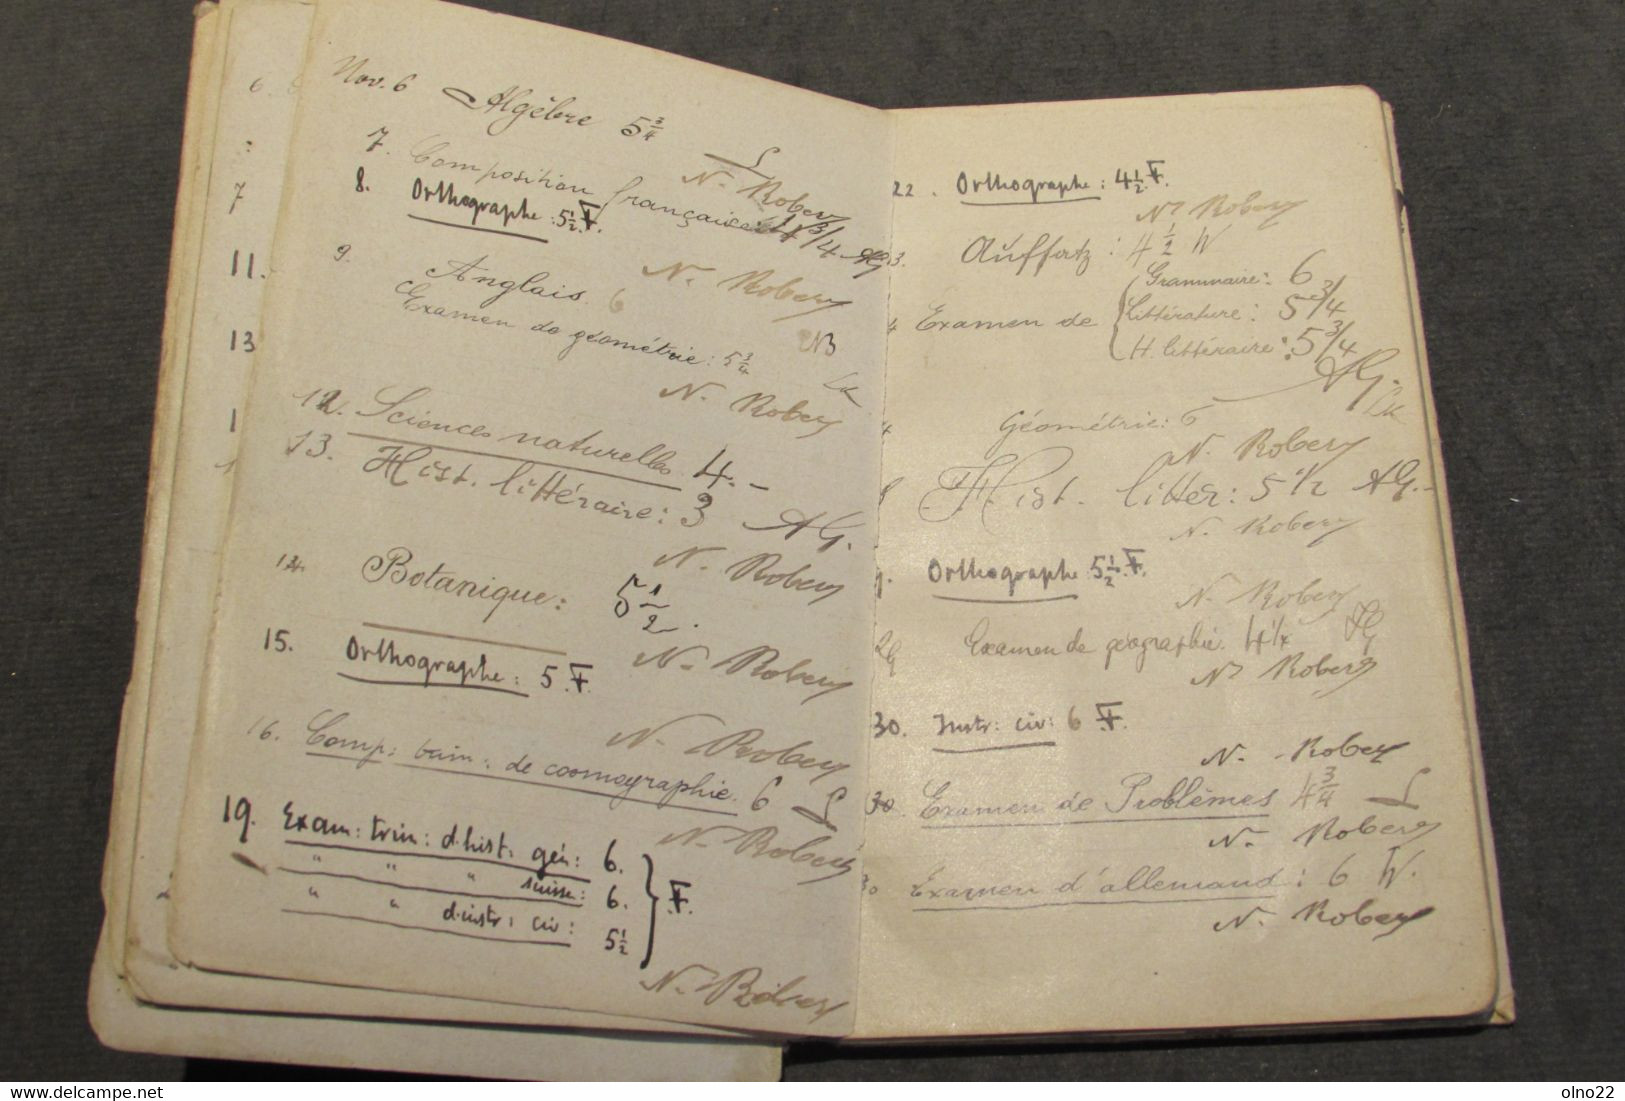 Nov. 6 Algèbre 5 3/4
7. Composition française: 4 3/4 AG
N. Robery
8. Orthographe: 5 1/2. F.
N. Robery
9. Anglais 6
Examen de géométrie: 5 3/4
N. Robery
12. Sciences naturelles 4. -
13. Hist. littéraire: 3 AG.
N. Robery
14. Botanique: 5 1/2.
N. Robery
15. Orthographe: 5. F.
N. Robery
16. Comp: trim: de cosmographie. 6
N. Robery
19. Exam: trim: d'hist. gén: 6.
" " " suisse: 6. F.
" " d'instr: civ: 5 1/2
N. Robery
6.
7
11.
13
1
22. Orthographe: 4 1/2. F.
N. Robery
Aufsatz: 4 1/2 W
Grammaire: 6
Examen de Littérature: 5 3/4
H. littéraire: 5 3/4
AG.
Géométrie: 6
N. Robery
Hist. littér: 5 1/2 AG.-
N. Robery
Orthographe 5 1/2. F.
N. Robery
Examen de géographie. AG
N. Robery
30. Instr: civ: 6 F.
N. Robery
30. Examen de Problèmes 4 3/4
N. Robery
30 Examen d'allemand: 6 W.
N. Robery
olno22